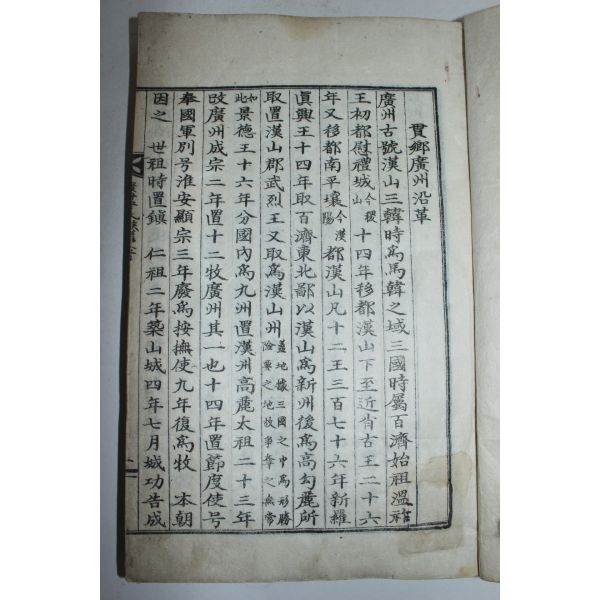 貫鄕廣州沿革
廣州古號漢山三韓時爲馬韓之域三國時屬百濟始祖溫祚
王初都慰禮城今稷山十四年移都漢山下至近肖古王二十六
年又移都南平壤今漢陽都漢山凡十二王三百七十六年新羅
眞興王十四年取百濟東北鄙以漢山爲新州後爲高勾麗所
取置漢山郡武烈王又取爲漢山州盖地據三國之中爲形勝險要之地故事奪之無常
如此景德王十六年分國內爲九州置漢州高麗太祖二十三年
改廣州成宗二年置十二牧廣州其一也十四年置節度使号
奉國軍別号淮安顯宗三年廢爲按撫使九年復爲牧 本朝
因之 世祖時置鎭 仁祖二年築山城四年七月城功告成